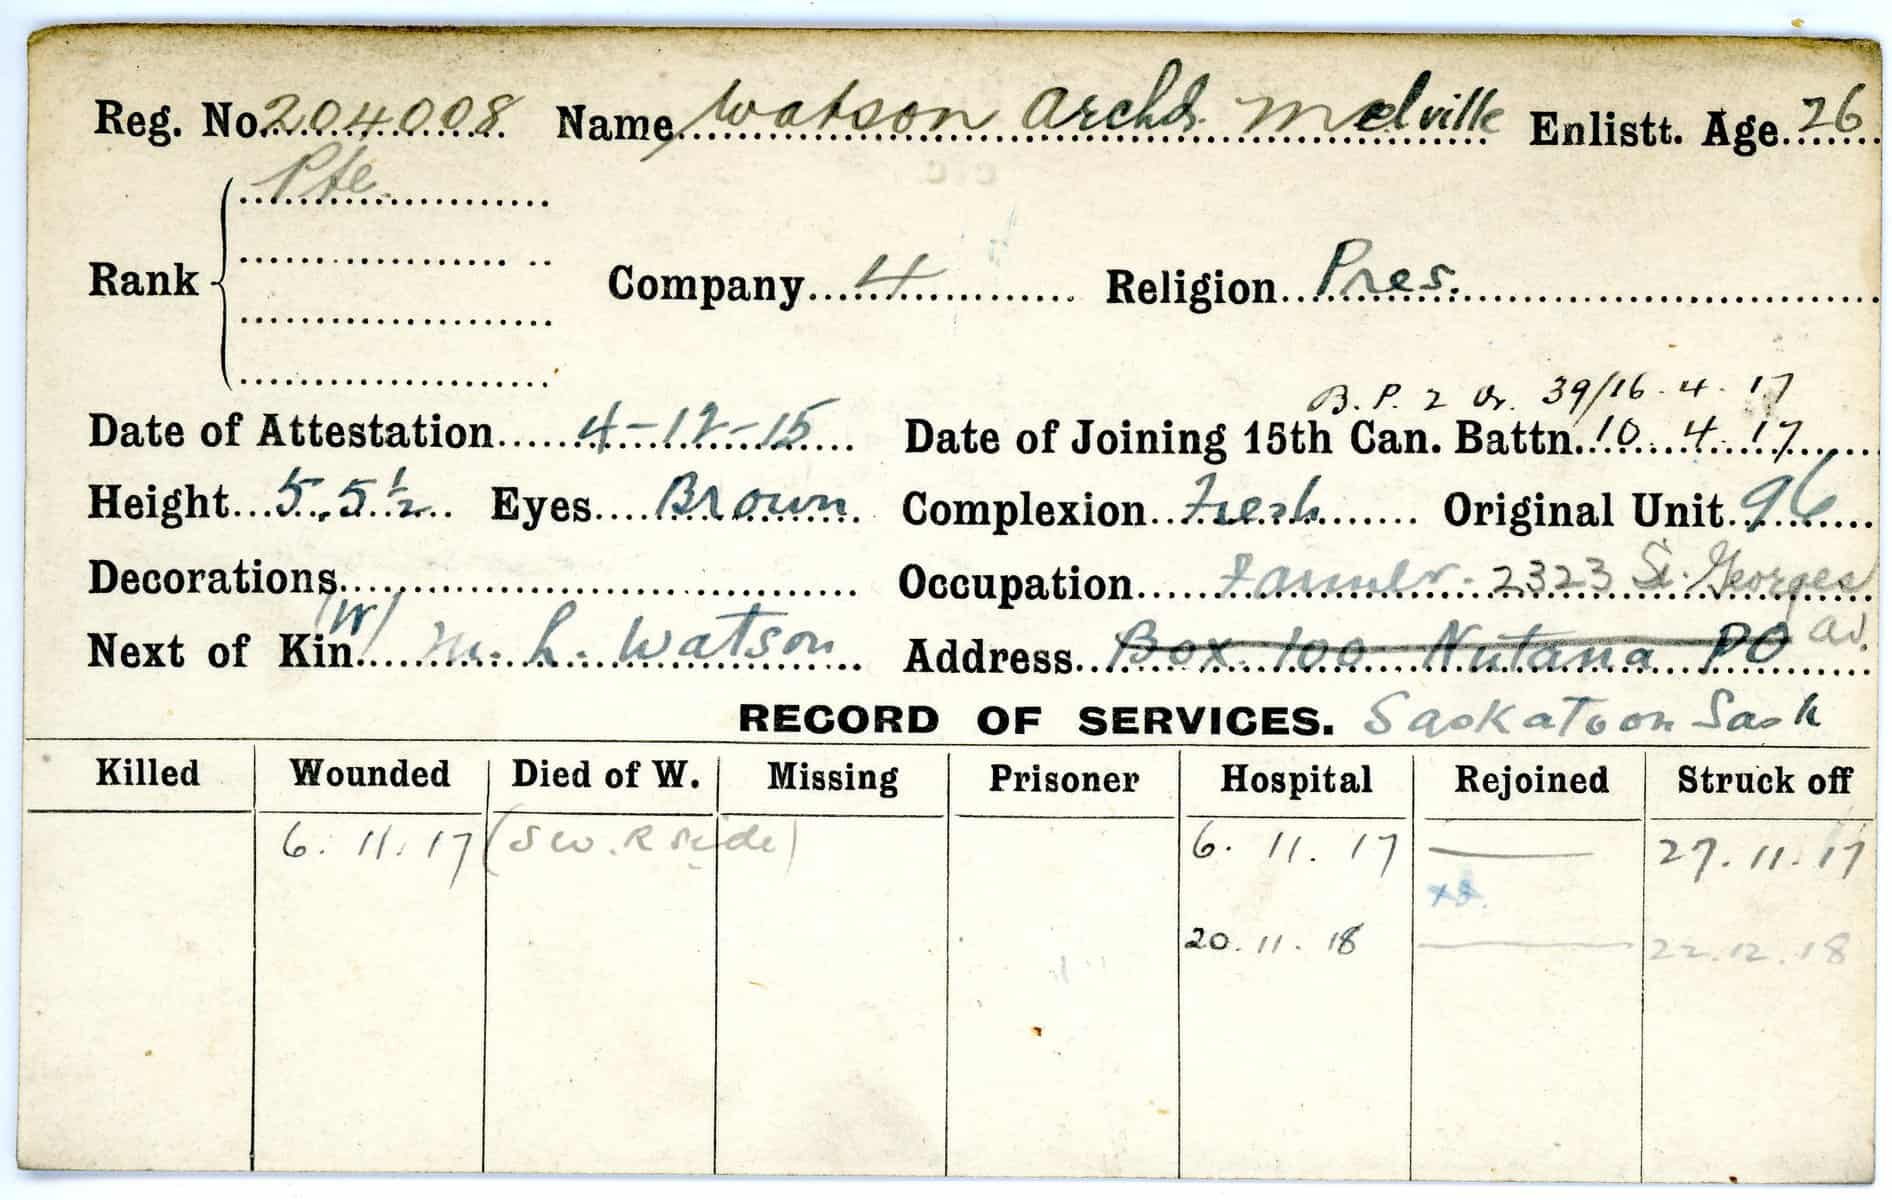 Reg. No. 204008 Name Watson Archd. Melville Enlistt. Age. 26
Pte.
Rank Company 4 Religion Pres.
B. P. 2 Or. 39/16.4.17
Date of Attestation 4-12-15 Date of Joining 15th Can. Battn. 10.4.17
Height 5.5½ Eyes Brown Complexion Fresh Original Unit 96
Decorations Occupation Farmer. 2323 St. Georges
(W) Av.
Next of Kin M. L. Watson Address Box 100 Nutana PO
RECORD OF SERVICES. Saskatoon Sask
Killed Wounded Died of W. Missing Prisoner Hospital Rejoined Struck off
6.11.17 (SW. R side) 6.11.17 — 27.11.17
20.11.18 — 22.12.18